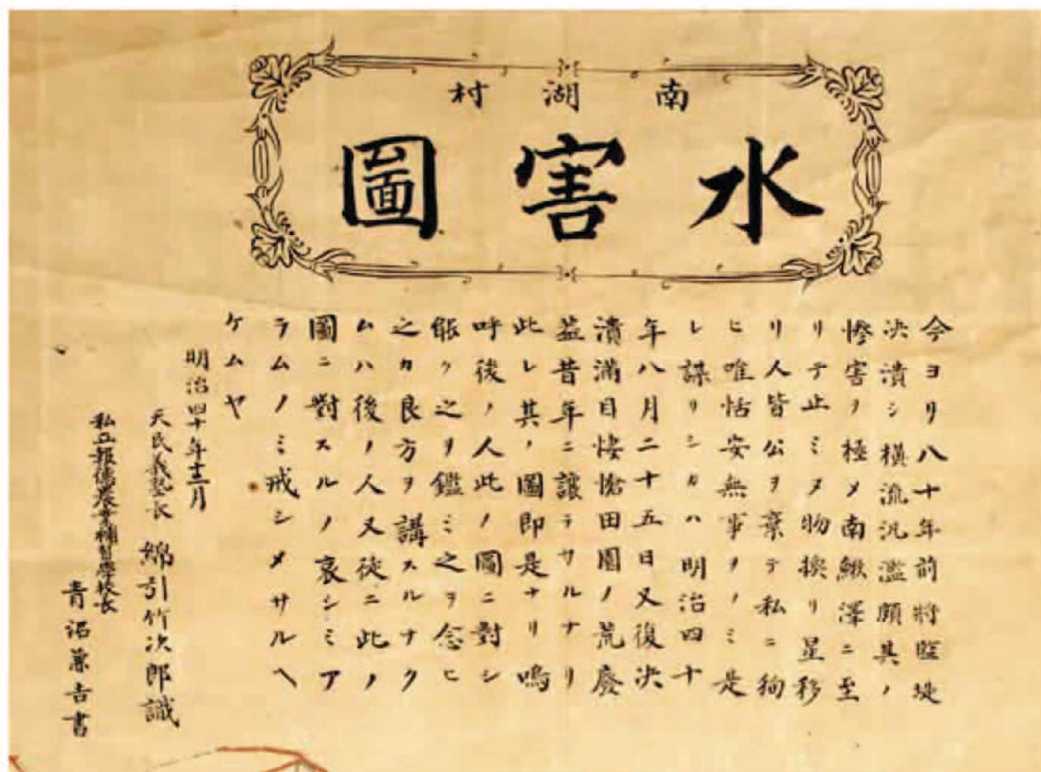 南湖村
水害圖
今ヨリ八十年前将監堤
決潰シ横流汎濫頗其ノ
惨害ヲ極メ南鰍澤ニ至
リテ止ミヌ物換リ星移
リ人皆公ヲ棄テ私ニ徇
ヒ唯恬安無事ヲノミ是
レ謀リシカハ明治四十
年八月二十五日又復决
潰滿目悽愴田園ノ荒廢
益昔年ニ讓ラサルナリ
此レ其ノ圖即是ナリ嗚
呼後ノ人此ノ圖ニ對シ
能ク之ヲ鑑ミ之ヲ念ヒ
之カ良方ヲ講スルナク
ムハ後ノ人又徒ニ此ノ
圖ニ對スルノ哀シミア
ラムノミ戒シメサルヘ
ケムヤ
明治四十年十二月
天民義塾長 綿引竹次郎識
私立報德農業補習學校長
青沼兼吉書